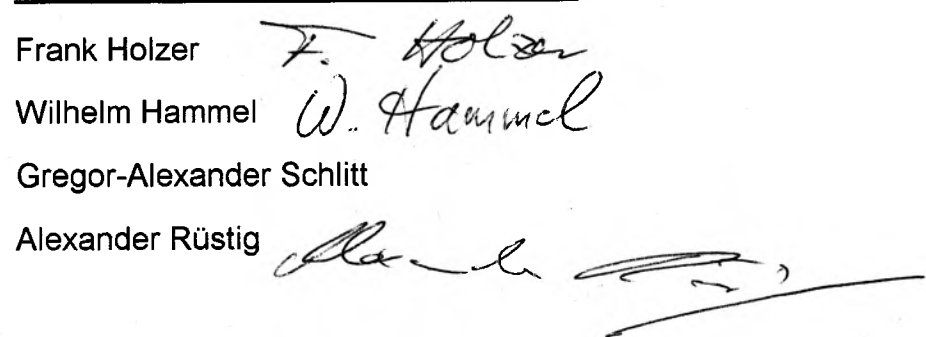 Frank Holzer F. Holzer
Wilhelm Hammel W. Hammel
Gregor-Alexander Schlitt
Alexander Rüstig